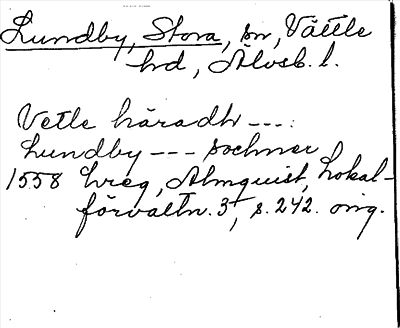 Lundby, Stora, sn, Vättle
hd, Älvsb. l.
Vetle häradh ---:
Lundby --- sochner
1558 hreg, Almquist, Lokal-
förvaltn. 3, s. 242. orig.